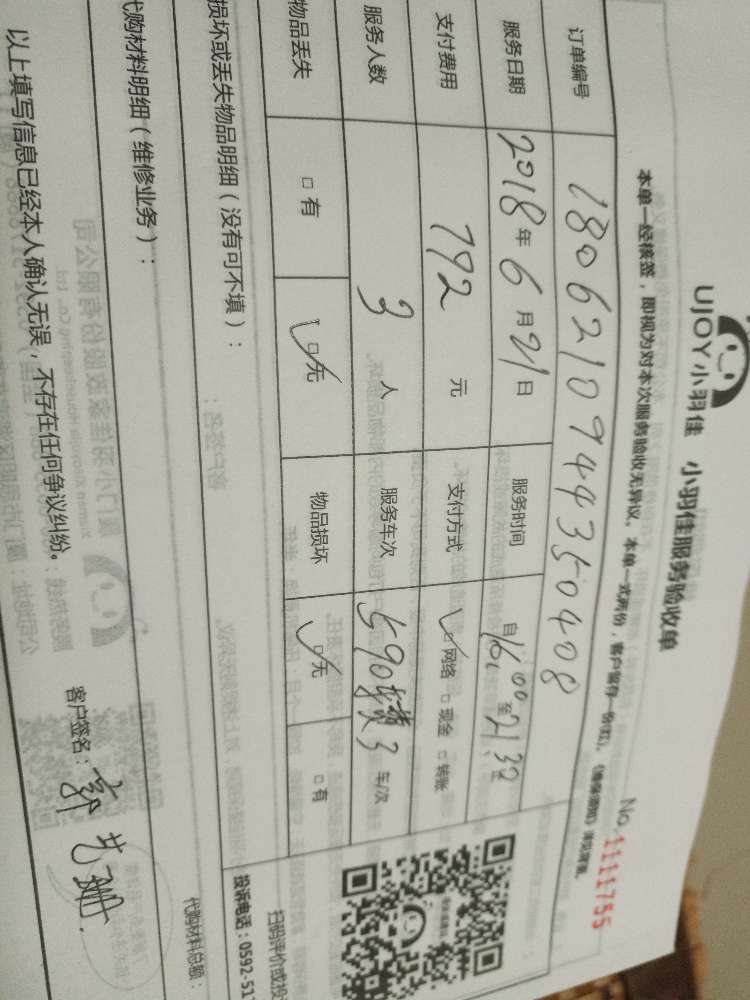 UJOY小羽佳 小羽佳服务验收单
No.1111755
本单一经核签，即视为对本次服务验收无异议。本单一式两份，客户留存一份(红)。
订单编号 1806210944350408
服务日期 2018年6月21日 服务时间 自16:00至21:30
支付费用 792元 支付方式 ☑网络 □现金 □转账
服务人数 3人 服务车次 3车/次
物品丢失 □有 ☑无 物品损坏 ☑无 □有
损坏或丢失物品明细（没有可不填）：
扫码评价或投
投诉电话：0592-51
代购材料明细（维修业务）：
代购材料总额：
以上填写信息已经本人确认无误，不存在任何争议纠纷。
客户签名：